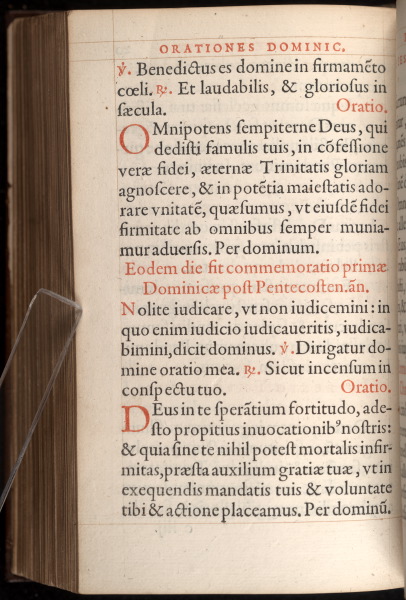 ORATIONES DOMINIC.
℣. Benedictus es domine in firmamẽto
cœli. ℟. Et laudabilis, & gloriosus in
sæcula. Oratio.
OMnipotens sempiterne Deus, qui
dedisti famulis tuis, in cõfessione
veræ fidei, æternæ Trinitatis gloriam
agnoscere, & in potẽtia maiestatis ado-
rare vnitatẽ, quæsumus, vt eiusdẽ fidei
firmitate ab omnibus semper munia-
mur aduersis. Per dominum.
Eodem die fit commemoratio primæ
Dominicæ post Pentecosten. añ.
Nolite iudicare, vt non iudicemini: in
quo enim iudicio iudicaueritis, iudica-
bimini, dicit dominus. ℣. Dirigatur do-
mine oratio mea. ℟. Sicut incensum in
conspectu tuo. Oratio.
DEus in te sperãtium fortitudo, ade-
sto propitius inuocationibꝰ nostris:
& quia sine te nihil potest mortalis infir-
mitas, præsta auxilium gratiæ tuæ, vt in
exequendis mandatis tuis & voluntate
tibi & actione placeamus. Per dominũ.